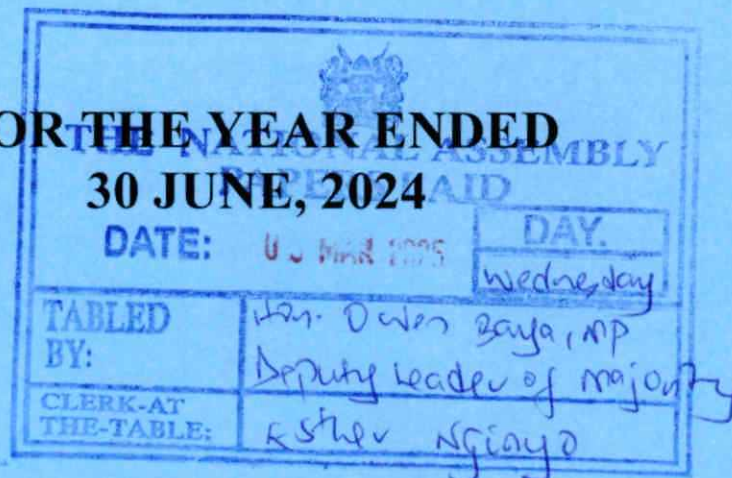 OR THE YEAR ENDED
THE NATIONAL ASSEMBLY
30 JUNE, 2024
PAPERS LAID
DATE: MAR 2025
DAY.
Wednesday
TABLED BY:
Hon. Owen Baya, MP
Deputy Leader of Majority
CLERK-AT THE-TABLE:
Esther